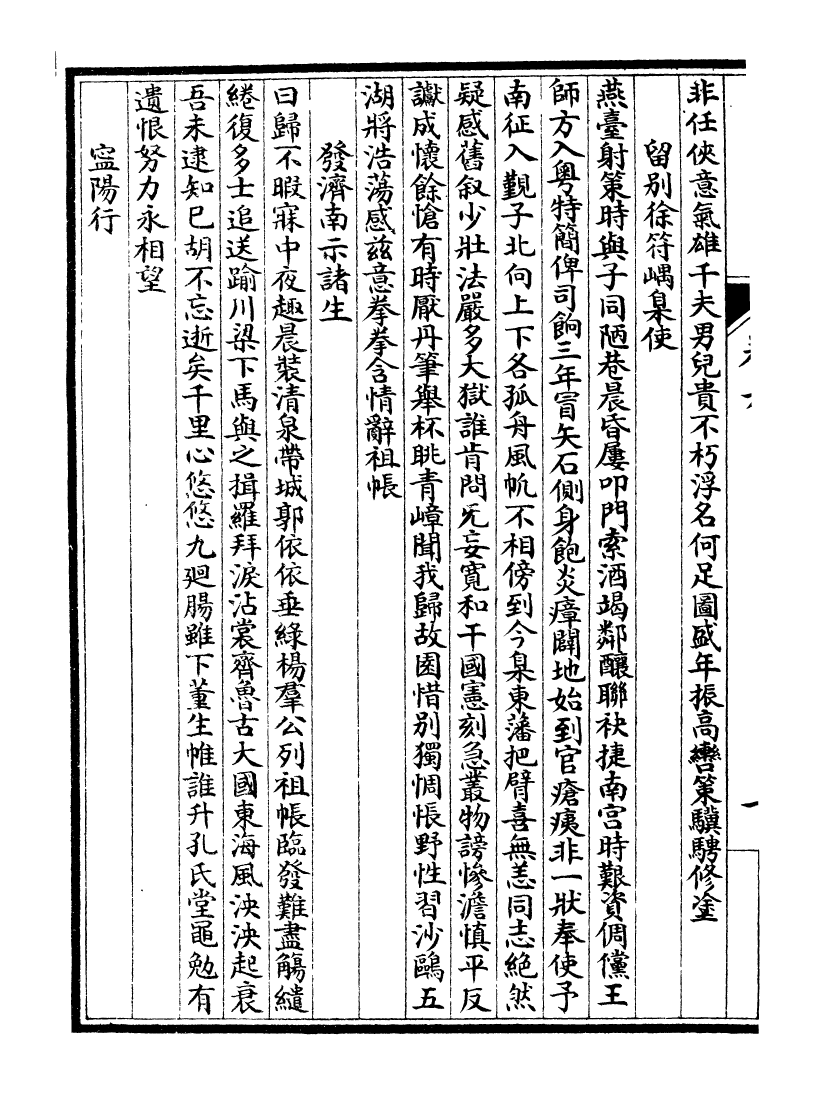 非任俠意氣雄千夫男兒貴不朽浮名何足圖盛年振高轡策驥騁修塗
留别徐符嵎臬使
燕臺射策時與子同陋巷晨昏屢叩門索酒竭鄰釀聯袂捷南宫時艱資倜儻王
師方入粤特簡俾司餉三年冒矢石側身飽炎瘴闢地始到官瘡痍非一狀奉使予
南征入覲子北向上下各孤舟風帆不相傍到今臬東藩把臂喜無恙同志絶然
疑感舊叙少壯法嚴多大獄誰肯問旡妄寛和干國憲刻急叢物謗慘澹慎平反
讞成懷餘愴有時厭丹筆舉杯眺青嶂聞我歸故園惜别獨惆悵野性習沙鷗五
湖將浩蕩感兹意拳拳含情辭祖帳
發濟南示諸生
曰歸不暇寐中夜趣晨裝清泉帶城郭依依垂綠楊羣公列祖帳臨發難盡觴繾
綣復多士追送踰川梁下馬與之揖羅拜淚沾裳齊魯古大國東海風泱泱起衰
吾未逮知已胡不忘逝矣千里心悠悠九廻腸雖下董生帷誰升孔氏堂黽勉有
遺恨努力永相望
寍陽行